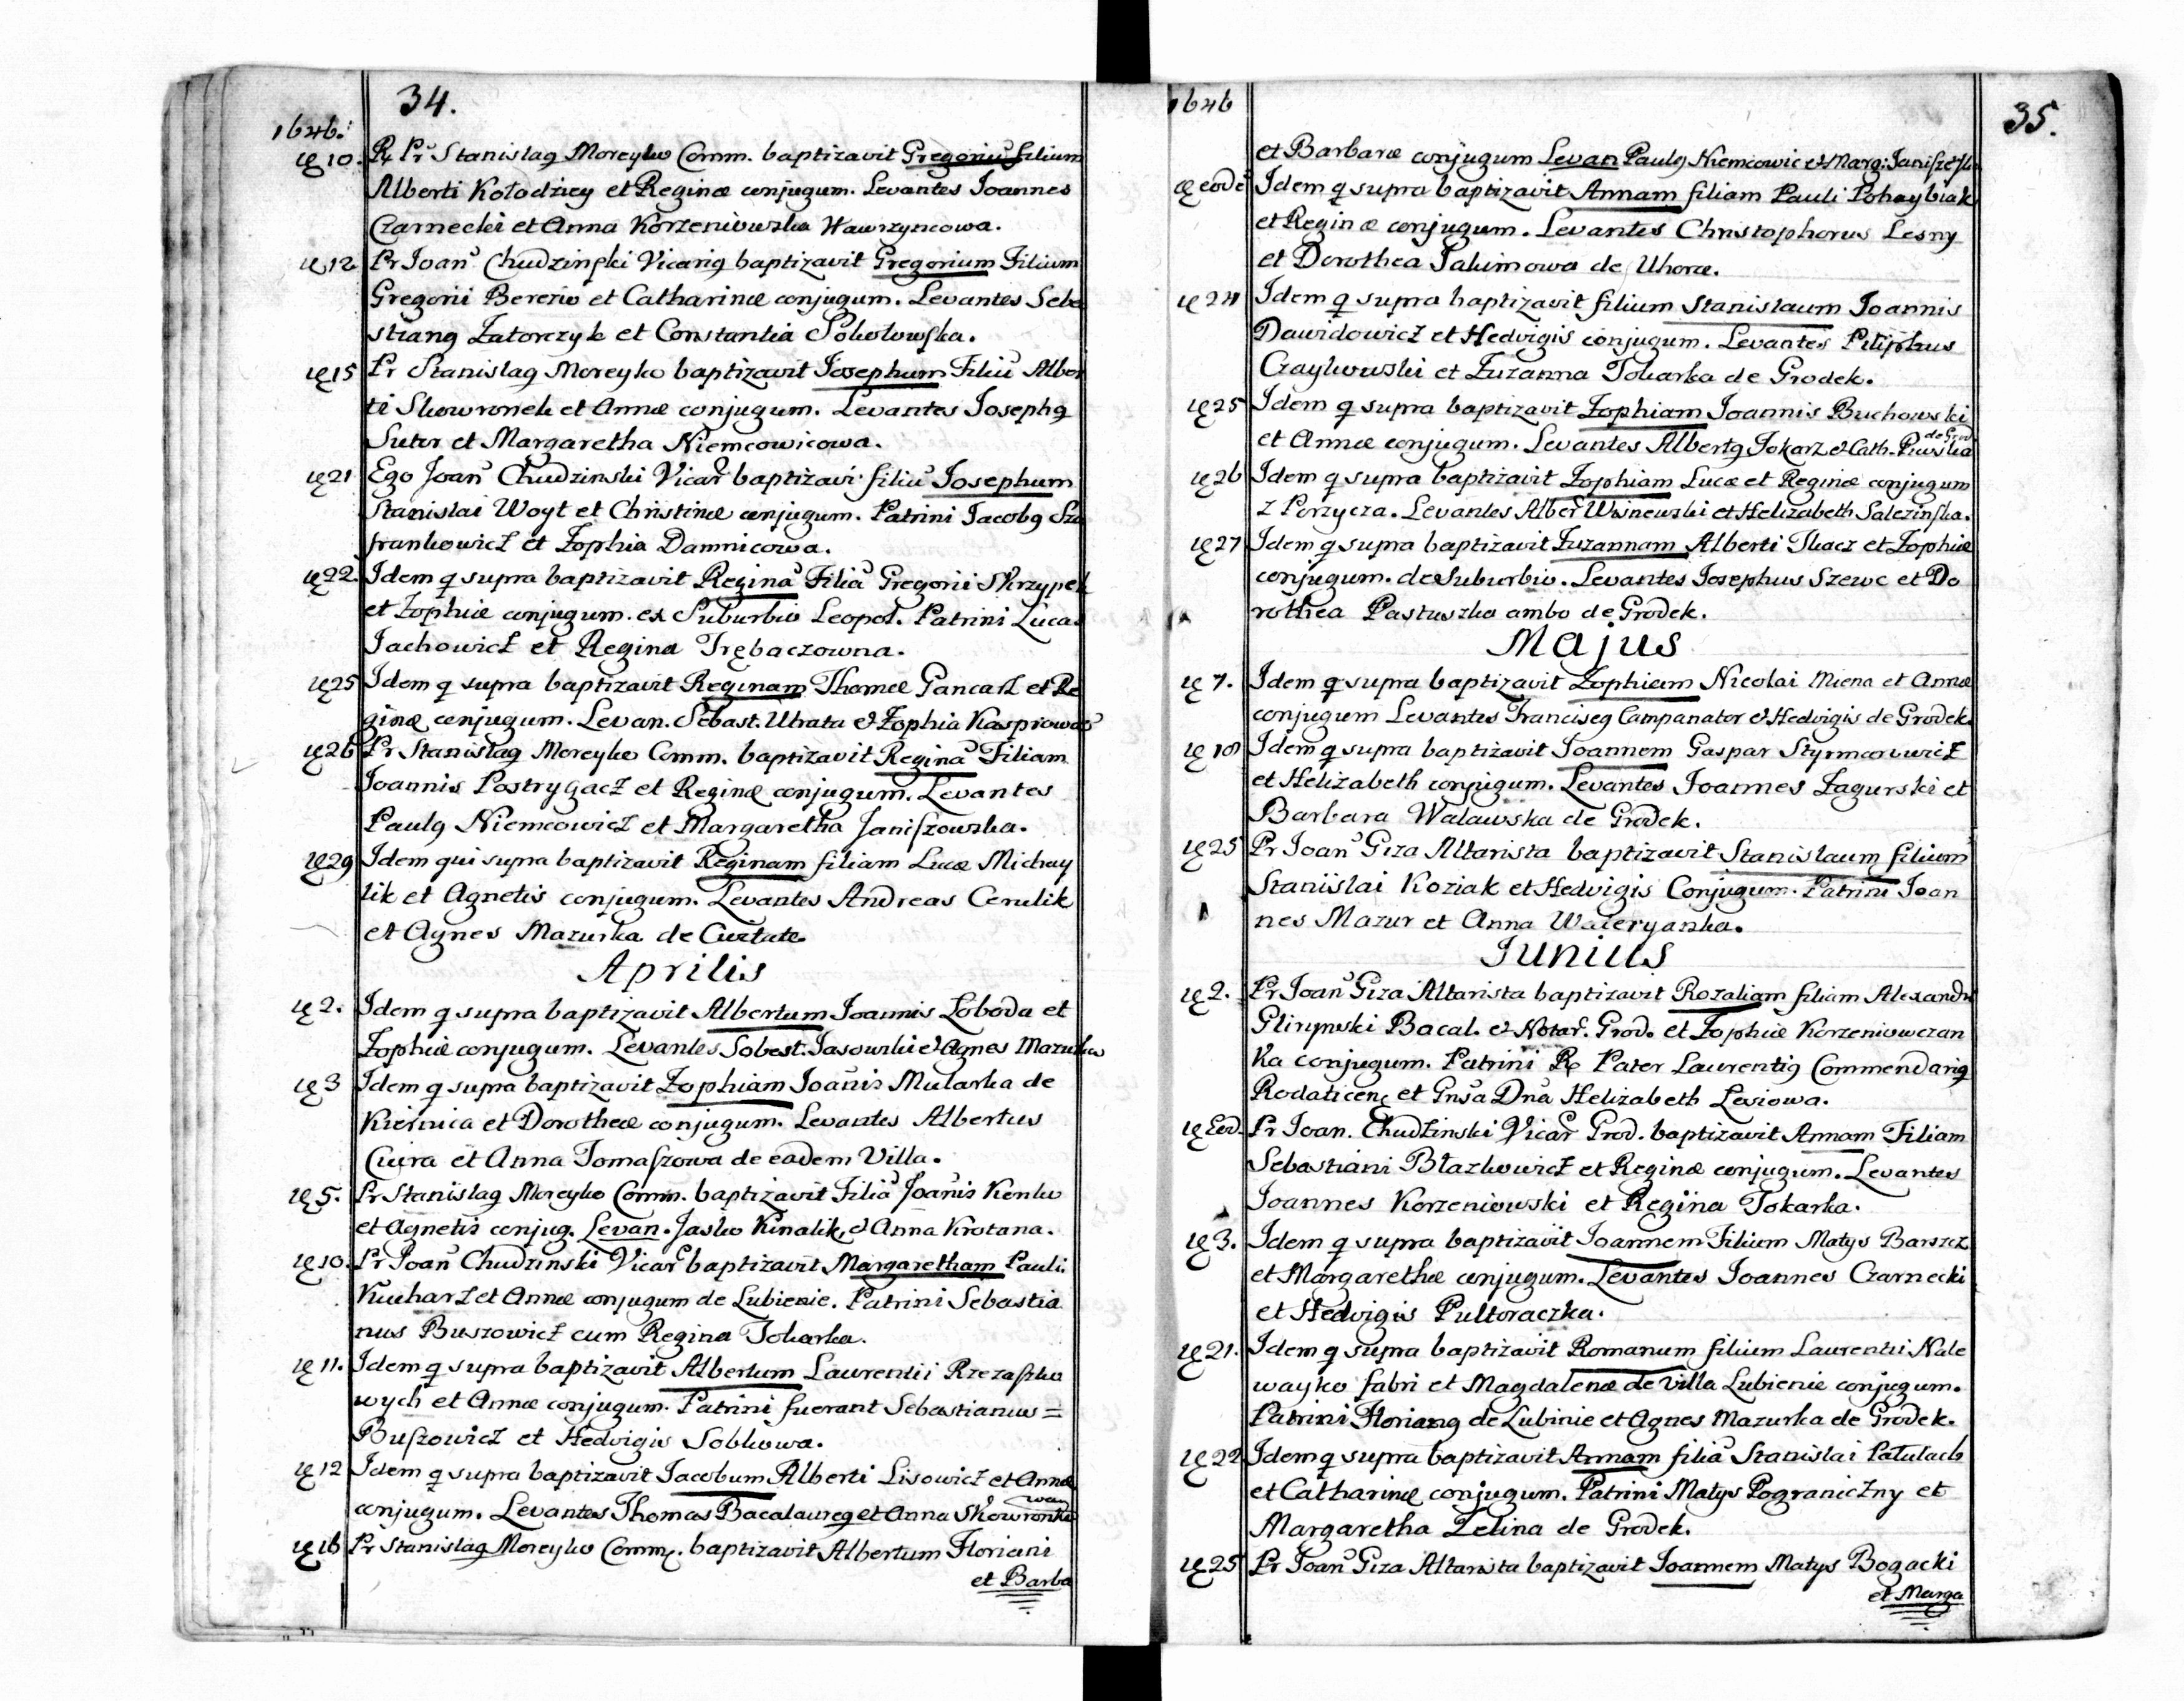 34.
1646.
10. R Pr Stanislaq Moreyko Comm. baptizavit Gregoriu filium
Alberti Kołodziey et Reginæ conjugum. Levantes Joannes
Czarnecki et Anna Korzeniowska Wawrzyncowa.
12 Pr Joan Chudzinski Vicariq baptizavit Gregorium Filium
Gregorii Berezio et Catharinæ conjugum. Levantes Seba
stianq Zatorczyk et Constantia Sokolowska.
15 Pr Stanislaq Moreyko baptizavit Josephum Filiu Alber
ti Skowronek et Annæ conjugum. Levantes Josephq
Suter et Margaretha Niemcowicowa.
21 Ego Joan Chudzinski Vicar baptizavi filiu Josephum
Stanislai Woyt et Christinæ conjugum. Patrini Jacobq Sza
frankowicz et Zophia Damnicowa.
22 Idem q supra baptizavit Regina Filia Gregorii Skrzypek
et Zophiæ conjugum. ex Suburbio Leopol. Patrini Lucas
Jachowicz et Regina Trębaczowna.
25 Idem q supra baptizavit Reginam Thomæ Gancarz et Re
ginæ conjugum. Levan. Sebast. Utrata et Zophia Kasprowa
26 Pr Stanislaq Moreyko Comm. baptizavit Regina Filiam
Joannis Postrygacz et Reginæ conjugum. Levantes
Paulq Niemcowicz et Margaretha Janiszowska.
29 Idem qui supra baptizavit Reginam filiam Lucæ Michay
lik et Agnetis conjugum. Levantes Andreas Cerulik
et Agnes Mazurka de Civitate
Aprilis
2. Idem q supra baptizavit Albertum Joannis Loboda et
Zophiæ conjugum. Levantes Sobest. Jasowski et Agnes Mazurka
3 Idem q supra baptizavit Zophiam Joanis Mularka de
Kiernica et Dorotheæ conjugum. Levantes Albertus
Ciura et Anna Tomaszowa de eadem Villa.
5. Pr Stanislaq Moreyko Comm. baptizavit Filia Joanis Kenko
et Agnetis conjug. Levan. Jasko Kinalik, et Anna Krotana.
10. Pr Joan Chudzinski Vicar baptizavit Margaretham Pauli
Kucharz et Annæ conjugum de Lubienie. Patrini Sebastia
nus Buszowicz cum Regina Tokarka.
11. Idem q supra baptizavit Albertum Laurentii Rzezasko
wych et Annæ conjugum. Patrini fuerant Sebastianus =
Buszowicz et Hedvigis Sobkowa.
12 Idem q supra baptizavit Jacobum Alberti Lisowicz et Annæ
conjugum. Levantes Thomas Bacalaureq et Anna Skowronko
wan
16 Pr Stanislaq Moreyko Comm. baptizavit Albertum Floriani
et Barba
1646
35.
et Barbaræ conjugum Levan Paulq Niemcowic et Marg: Janiszewska
eode Idem q supra baptizavit Annam filiam Pauli Pohaybiak
et Reginæ conjugum. Levantes Christophorus Lesny
et Dorothea Jakimowa de Uhorce.
24 Idem q supra baptizavit filium Stanislaum Joannis
Dawidowicz et Hedvigis conjugum. Levantes Philiphus
Czaykowski et Zuzanna Tokarka de Grodek.
25 Idem q supra baptizavit Zophiam Joannis Buchowski
et Annæ conjugum. Levantes Albertq Tokarz et Cath. Piwska
de Grod.
26 Idem q supra baptizavit Zophiam Lucæ et Reginæ conjugum
z Porzycza. Levantes Alber Wisniewski et Helizabeth Salezinska.
27 Idem q supra baptizavit Zuzannam Alberti Tkacz et Zophiæ
conjugum. de Suburbio. Levantes Josephus Szewc et Do
rothea Pastuszka ambo de Grodek.
Majus
7. Idem q supra baptizavit Zophiam Nicolai Miena et Annæ
conjugum Levantes Franciseq Campanator et Hedvigis de Grodek.
18 Idem q supra baptizavit Joannem Gaspar Styrmarowicz
et Helizabeth conjugum. Levantes Joannes Zagurski et
Barbara Walawska de Grodek.
25 Pr Joan Giza Altarista baptizavit Stanislaum filium
Staniislai Koziak et Hedvigis Conjugum. Patrini Joan
nes Mazur et Anna Waleryanka.
Junius
2. Pr Joan Giza Altarista baptizavit Rozaliam filiam Alexandri
Glinynski Bacal. et Notar. Grod. et Zophiæ Korzeniowczan
ka conjugum. Patrini R Pater Laurentiq Commendariq
Rodaticen et Gnsa Dna Helizabeth Lesiowa.
Eod. Pr Joan. Chudzinski Vicar Grod. baptizavit Annam Filiam
Sebastiani Błazkowicz et Reginæ conjugum. Levantes
Joannes Korzeniowski et Regina Tokarka.
3. Idem q supra baptizavit Joannem Filium Matys Barszcz
et Margarethæ conjugum. Levantes Joannes Czarnecki
et Hedvigis Pultoraczka.
21. Idem q supra baptizavit Romanum filium Laurentii Nale
wayko fabri et Magdalenæ de villa Lubienie conjugum.
Patrini Florianq de Lubinie et Agnes Mazurka de Grodek.
22 Idem q supra baptizavit Annam filia Stanislai Patulach
et Catharinæ conjugum. Patrini Matys Pograniczny et
Margaretha Zelina de Grodek.
25 Pr Joan Giza Altarista baptizavit Joannem Matys Bogacki
et Marga